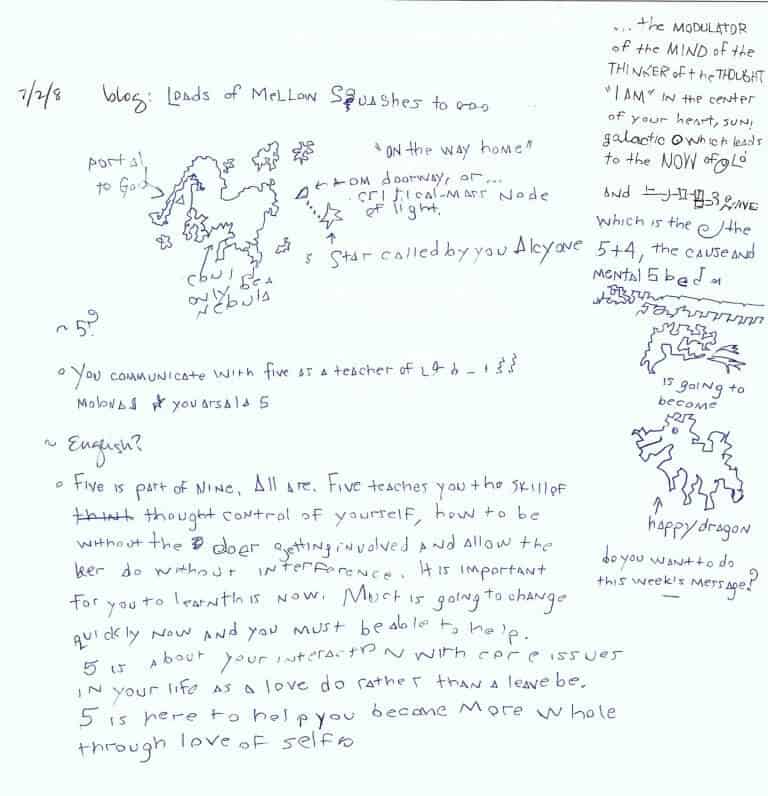 7/2/8 blog: Loads of Mellow Squashes to ooo
"ON the way home"
portal
to God
OM doorway, or...
critical-mass Node
of light.
Star called by you Alcyone
could
only be a
nebula
~ 5?
° You communicate with five as a teacher of
5
~ English?
° Five is part of Nine. All are. Five teaches you the skill of
think thought control of yourself, how to be
without the doer getting involved and allow the
ker do without interference. It is important
for you to learn this now. Much is going to change
quickly now and you must be able to help.
5 is about your interaction with core issues
in your life as a love do rather than a leave be.
5 is here to help you become more whole
through love of self
... the MODULATOR
of the MIND of the
THINKER of the THOUGHT
"I AM" in the center
of your heart, SUN,
galactic which leads
to the NOW of
AND
which is the the
5+4, the cause and
mental 5 bed
is going to
become
happy dragon
do you want to do
this week's message?